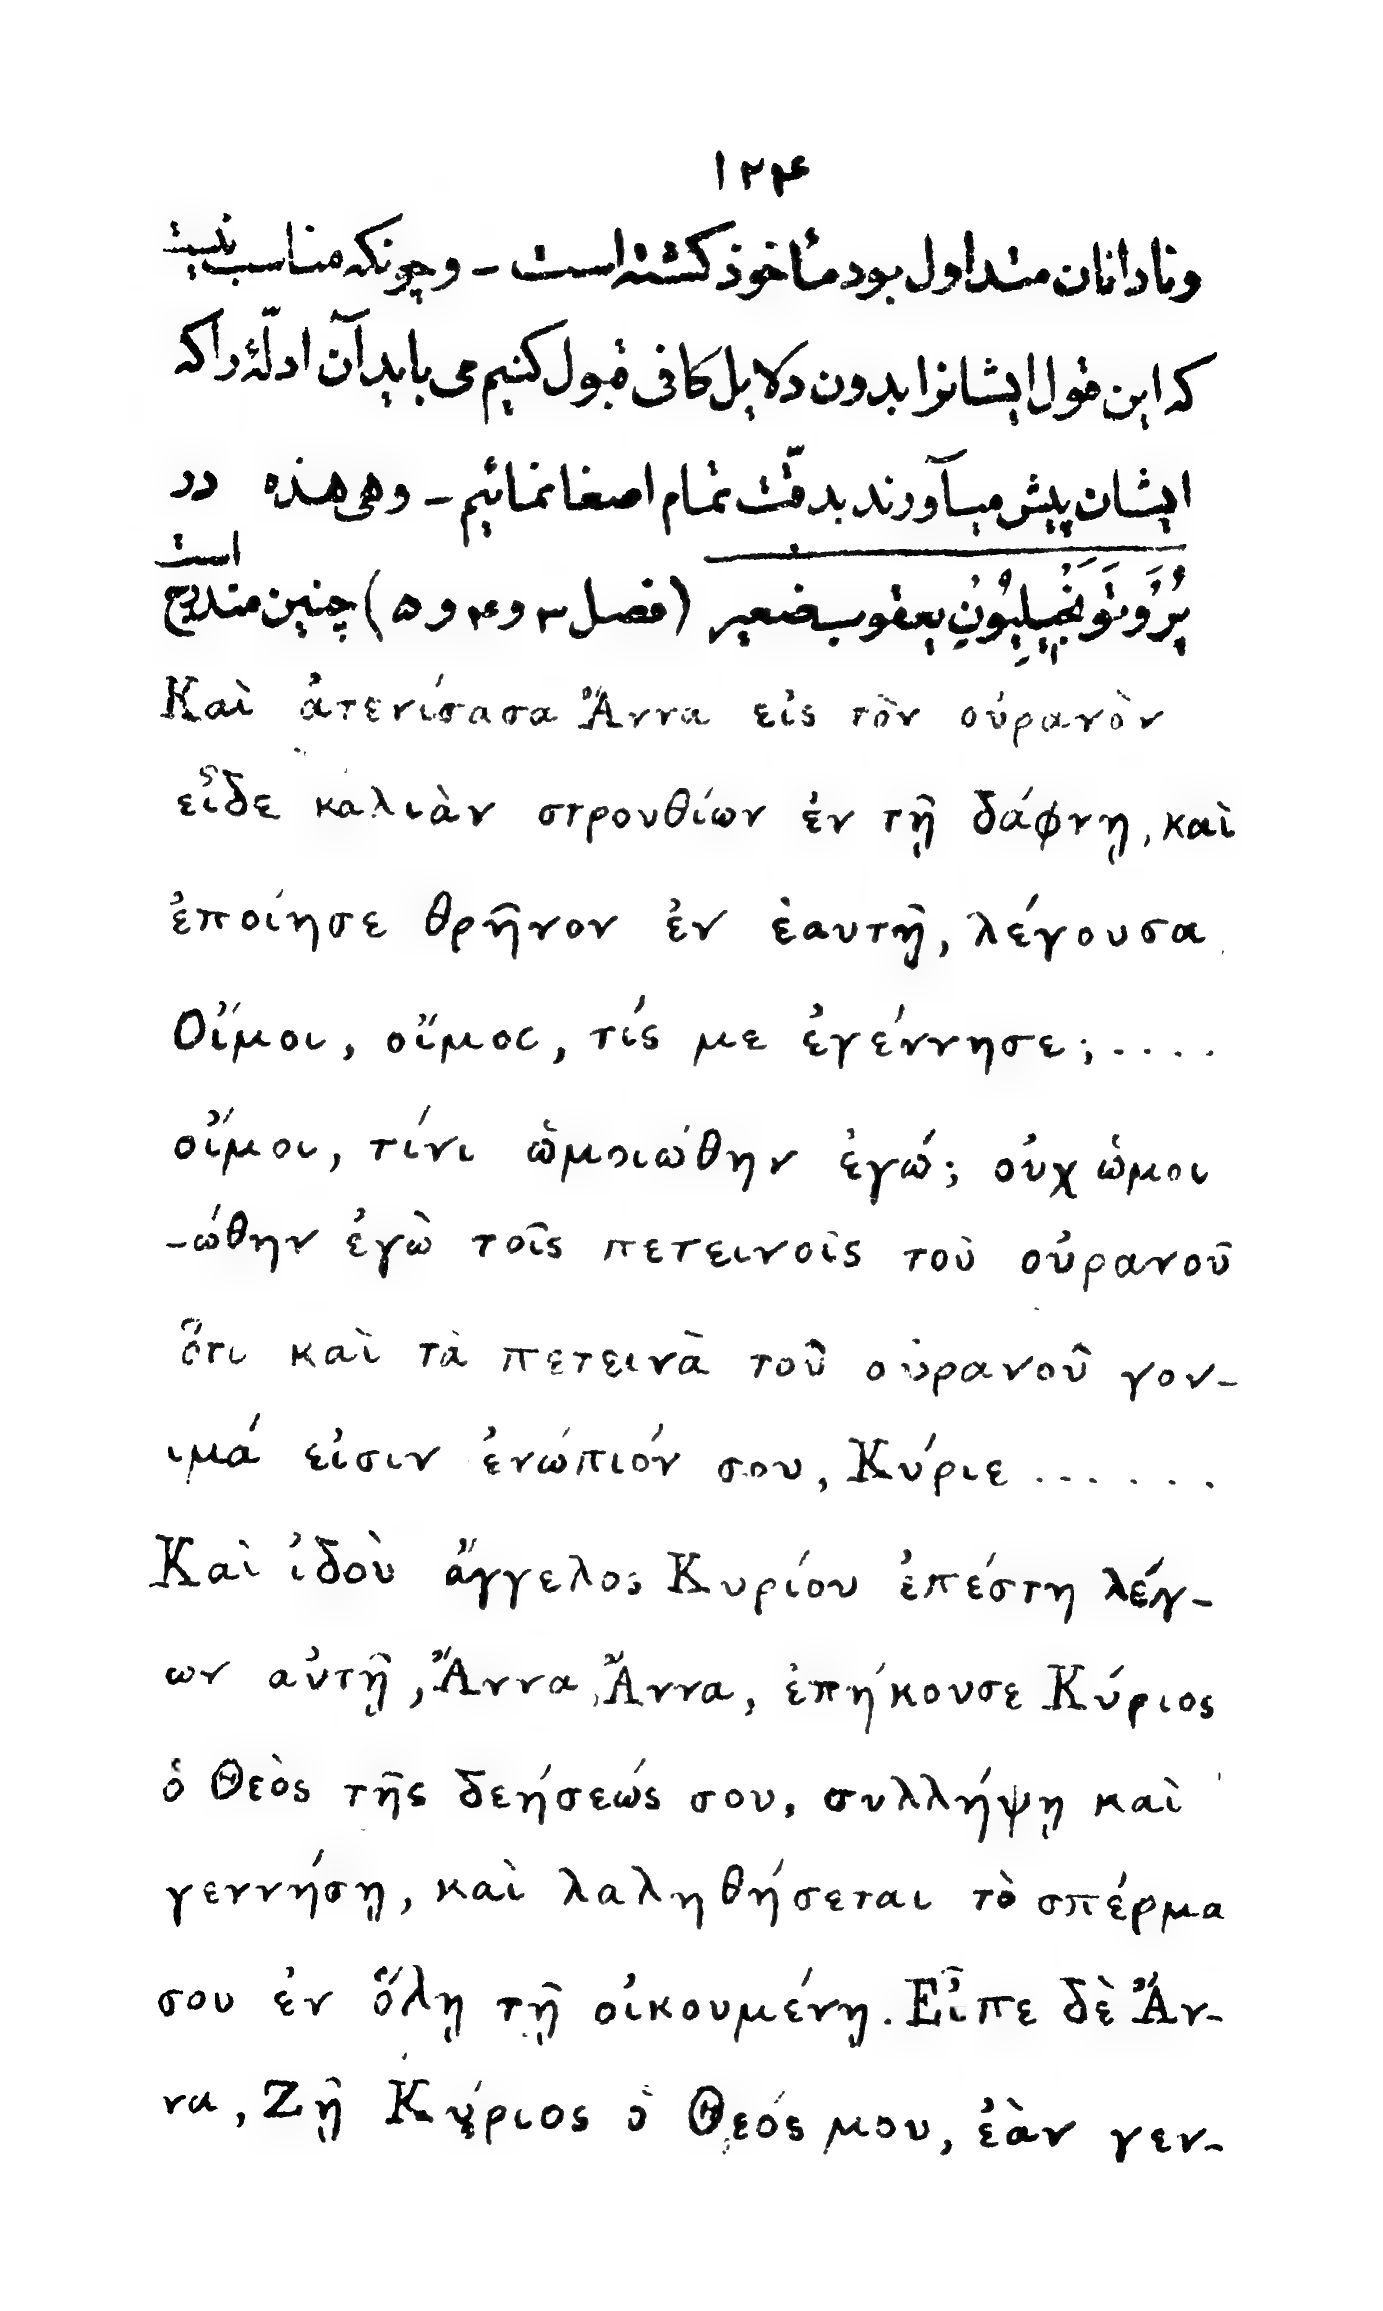 ۱۲۴
ونادانان متداول بود مأخوذ کشته است - وچونکه مناسب نیست
که این قول ایشانرا بدون دلایل کافی قبول کنیم می باید آن ادلّهٔ را که
ایشان پیش میآورند بدقّت تمام اصغا نمائیم - وهی هذه در
پُرُوتَوَنجِیلِیُونِ یعقوب صغیر (فصل ۳ و ۴ و ۵) چنین مندرج است
Καὶ ἀτενίσασα Ἄννα εἰς τὸν οὐρανὸν
εἶδε καλιὰν στρουθίων ἐν τῇ δάφνῃ, καὶ
ἐποίησε θρῆνον ἐν ἑαυτῇ, λέγουσα
Οἴμοι, οἴμοι, τίς με ἐγέννησε; ....
οἴμοι, τίνι ὡμοιώθην ἐγώ; οὐχ ὡμοι
-ώθην ἐγὼ τοῖς πετεινοῖς τοῦ οὐρανοῦ
ὅτι καὶ τὰ πετεινὰ τοῦ οὐρανοῦ γον-
ιμά εἰσιν ἐνώπιόν σου, Κύριε ......
Καὶ ἰδοὺ ἄγγελος Κυρίου ἐπέστη λέγ-
ων αὐτῇ, Ἄννα, Ἄννα, ἐπήκουσε Κύριος
ὁ Θεὸς τῆς δεήσεώς σου, συλλήψῃ καὶ
γεννήσῃ, καὶ λαληθήσεται τὸ σπέρμα
σου ἐν ὅλῃ τῇ οἰκουμένῃ. Εἶπε δὲ Ἄν-
να, Ζῇ Κύριος ὁ Θεός μου, ἐὰν γεν-